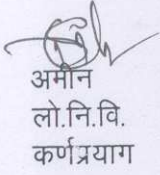 अमीन
लो.नि.वि.
कर्णप्रयाग